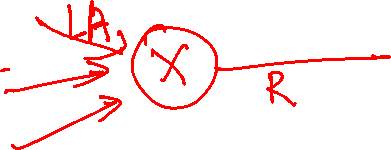 LA
X
R